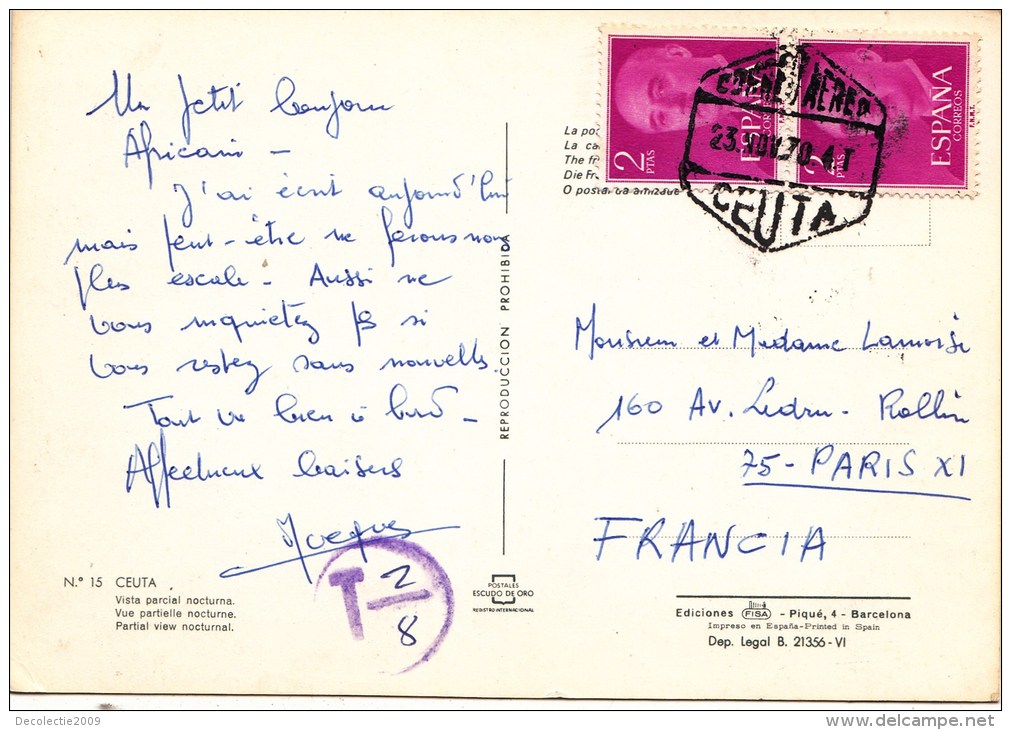 Un petit bonjour
Africain -
J'ai écrit aujourd'hui
mais peut-être ne ferons nous
plus escale - Aussi ne
vous inquietez pas si
vous restez sans nouvelles
Tout va bien à bord -
Affectueux baisers
Jacques
N.º 15 CEUTA
Vista parcial nocturna.
Vue partielle nocturne.
Partial view nocturnal.
T 2/8
REPRODUCCION PROHIBIDA
POSTALES
ESCUDO DE ORO
REGISTRO INTERNACIONAL
La po
La ca
The fr
Die Fr
O postal da amizade
2 PTAS
ESPAÑA
CORREOS
2 PTAS
ESPAÑA
CORREOS
F.N.M.T.
CORREO AEREO
23.NOV.70.4.T
CEUTA
Monsieur et Madame Lamoise
160 Av. Ledru-Rollin
75-PARIS XI
FRANCIA
Ediciones FISA - Piqué, 4 - Barcelona
Impreso en España-Printed in Spain
Dep. Legal B. 21356-VI
Decolectie2009
delcampe.net